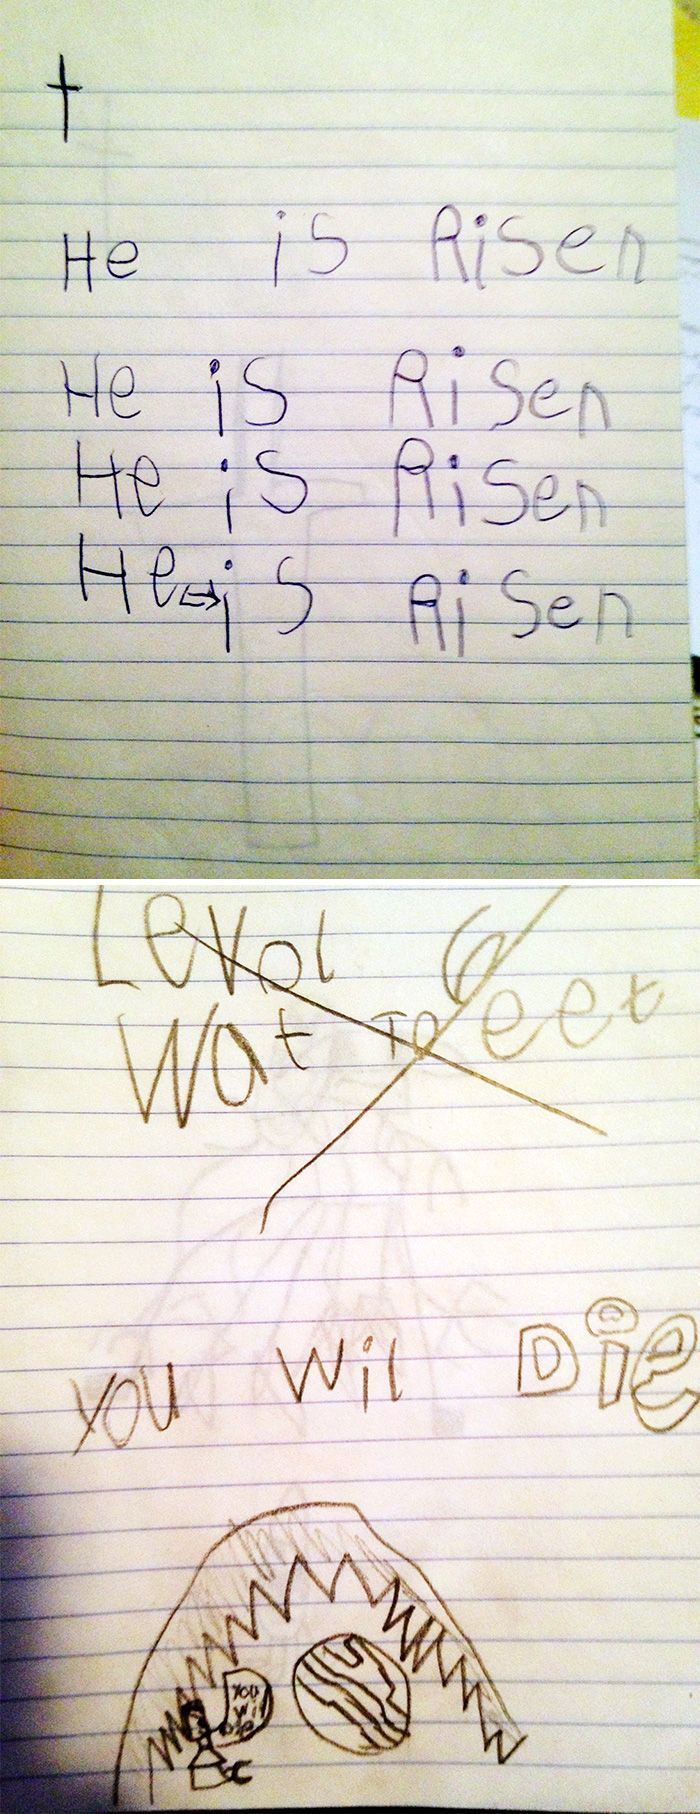 He is Risen
He is Risen
He is Risen
He is Risen
Level 6
Wat To eet
You Wil Die
You
Wil
Die